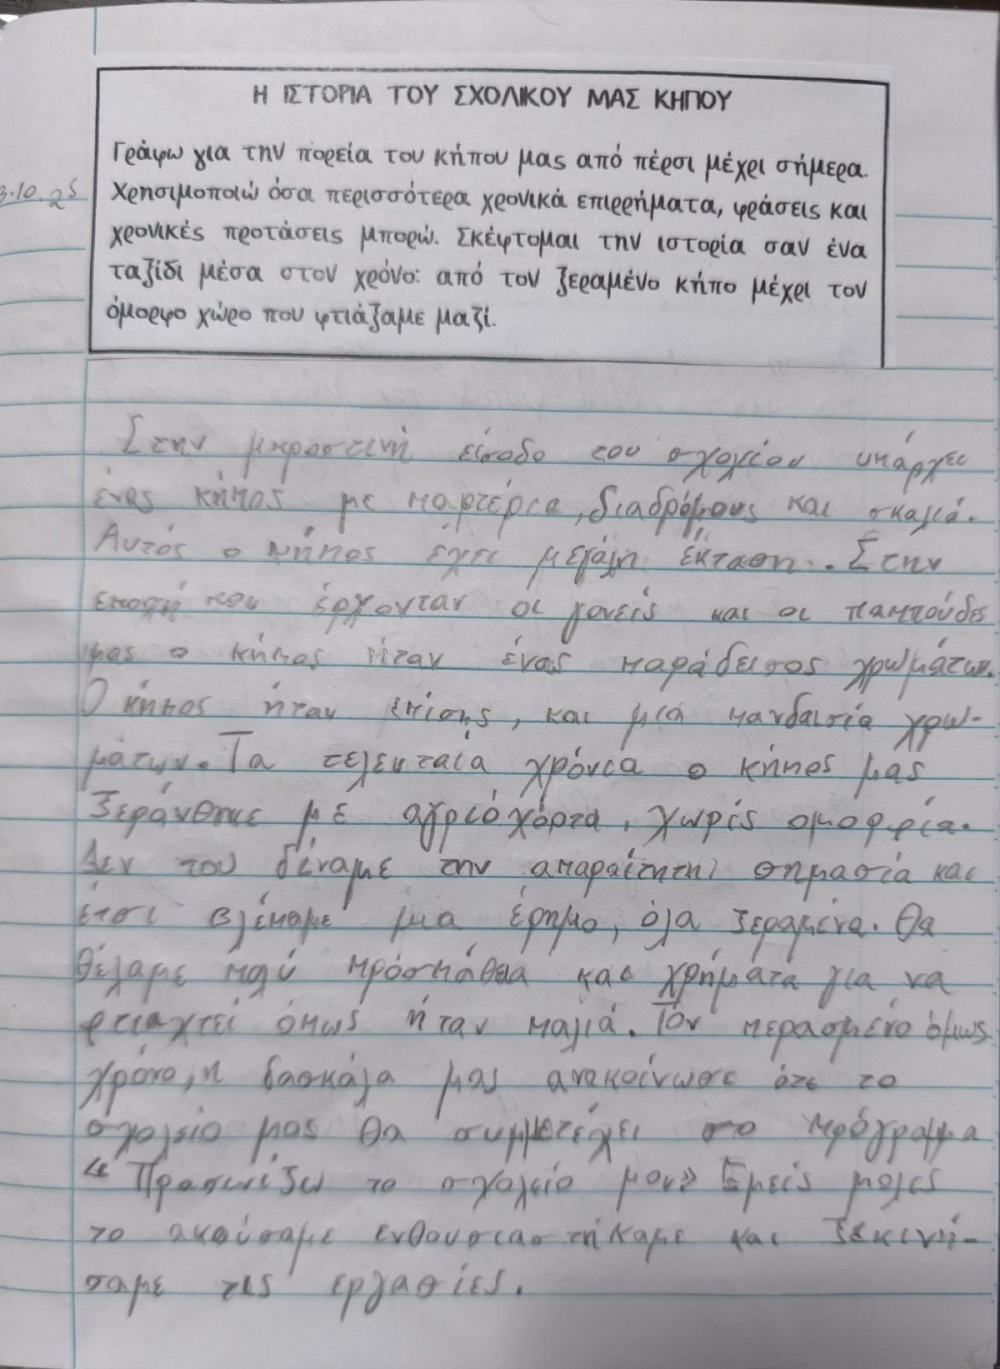 Η ΙΣΤΟΡΙΑ ΤΟΥ ΣΧΟΛΙΚΟΥ ΜΑΣ ΚΗΠΟΥ
Γράφω για την πορεία του κήπου μας από πέρσι μέχρι σήμερα.
3.10.25
Χρησιμοποιώ όσα περισσότερα χρονικά επιρρήματα, φράσεις και
χρονικές προτάσεις μπορώ. Σκέφτομαι την ιστορία σαν ένα
ταξίδι μέσα στον χρόνο: από τον ξεραμένο κήπο μέχρι τον
όμορφο χώρο που φτιάξαμε μαζί.
Στην μπροστινή είσοδο του σχολείου υπάρχει
ένας κήπος με παρτέρια, διαδρόμους και σκαλιά.
Αυτός ο κήπος έχει μεγάλη έκταση. Στην
εποχή που έρχονταν οι γονείς και οι παππούδες
μας ο κήπος ήταν ένας παράδεισος χρωμάτων.
Ο κήπος ήταν επίσης, και μια πανδαισία χρω-
μάτων. Τα τελευταία χρόνια ο κήπος μας
ξεράνθηκε με αγριόχορτα, χωρίς ομορφιά.
Δεν του δίναμε την απαραίτητη σημασία και
έτσι βλέπαμε μια έρημο, όλα ξεραμένα. Θα
θέλαμε πολύ πρόσπάθεια και χρήματα για να
φτιαχτεί όπως ήταν παλιά. Τον περασμένο όμως
χρόνο, η δασκάλα μας ανακοίνωσε ότι το
σχολείο μας θα συμμετέχει στο πρόγραμμα
"Πρασινίζω το σχολείο μου» Εμείς μόλις
το ακούσαμε ενθουσιαστήκαμε και ξεκινή-
σαμε τις εργασίες.